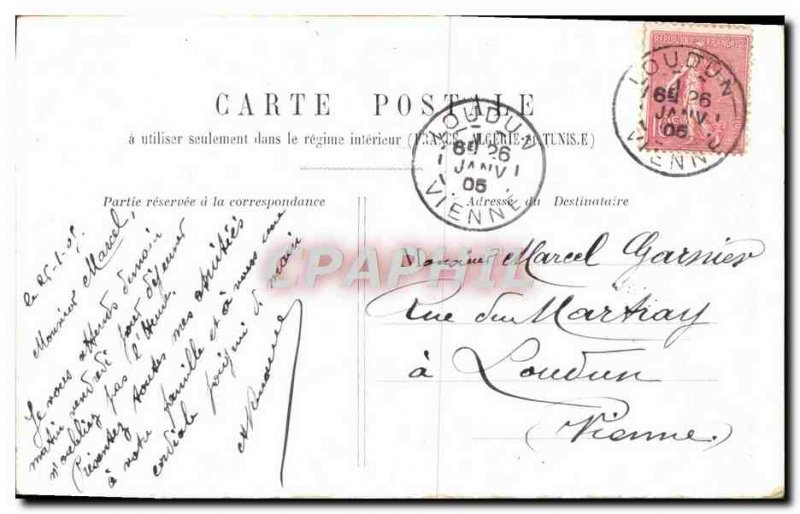 CARTE POSTALE
à utiliser seulement dans le régime intérieur (FRANCE, ALGERIE et TUNISIE)
Partie réservée à la correspondance
Adresse du Destinataire
REPUBLIQUE FRANÇAISE
LOUDUN
6E 26
JANV
05
VIENNE
LOUDUN
6E 26
JANV
05
VIENNE
CPAPHIL
le 25.1.05
Monsieur Marcel,
Je vous attends demain
matin vendredi pour déjeuner
n'oubliez pas l'Heure.
Présentez toutes mes amitiés
à votre famille et à vous une
cordiale poignée de main
Monsieur Marcel Garnier
Rue du Martray
à Loudun
(Vienne.)